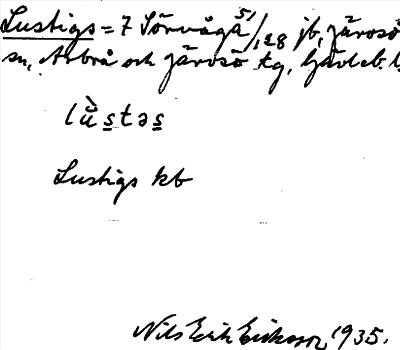 Lustigs = 7 Sörvåga 5/128 jb, Järvsö
sn, Arbrå och Järvsö tg, Gävleb. l
lùstəs
Lustigs kb
Nils Erik Eriksson 1935.